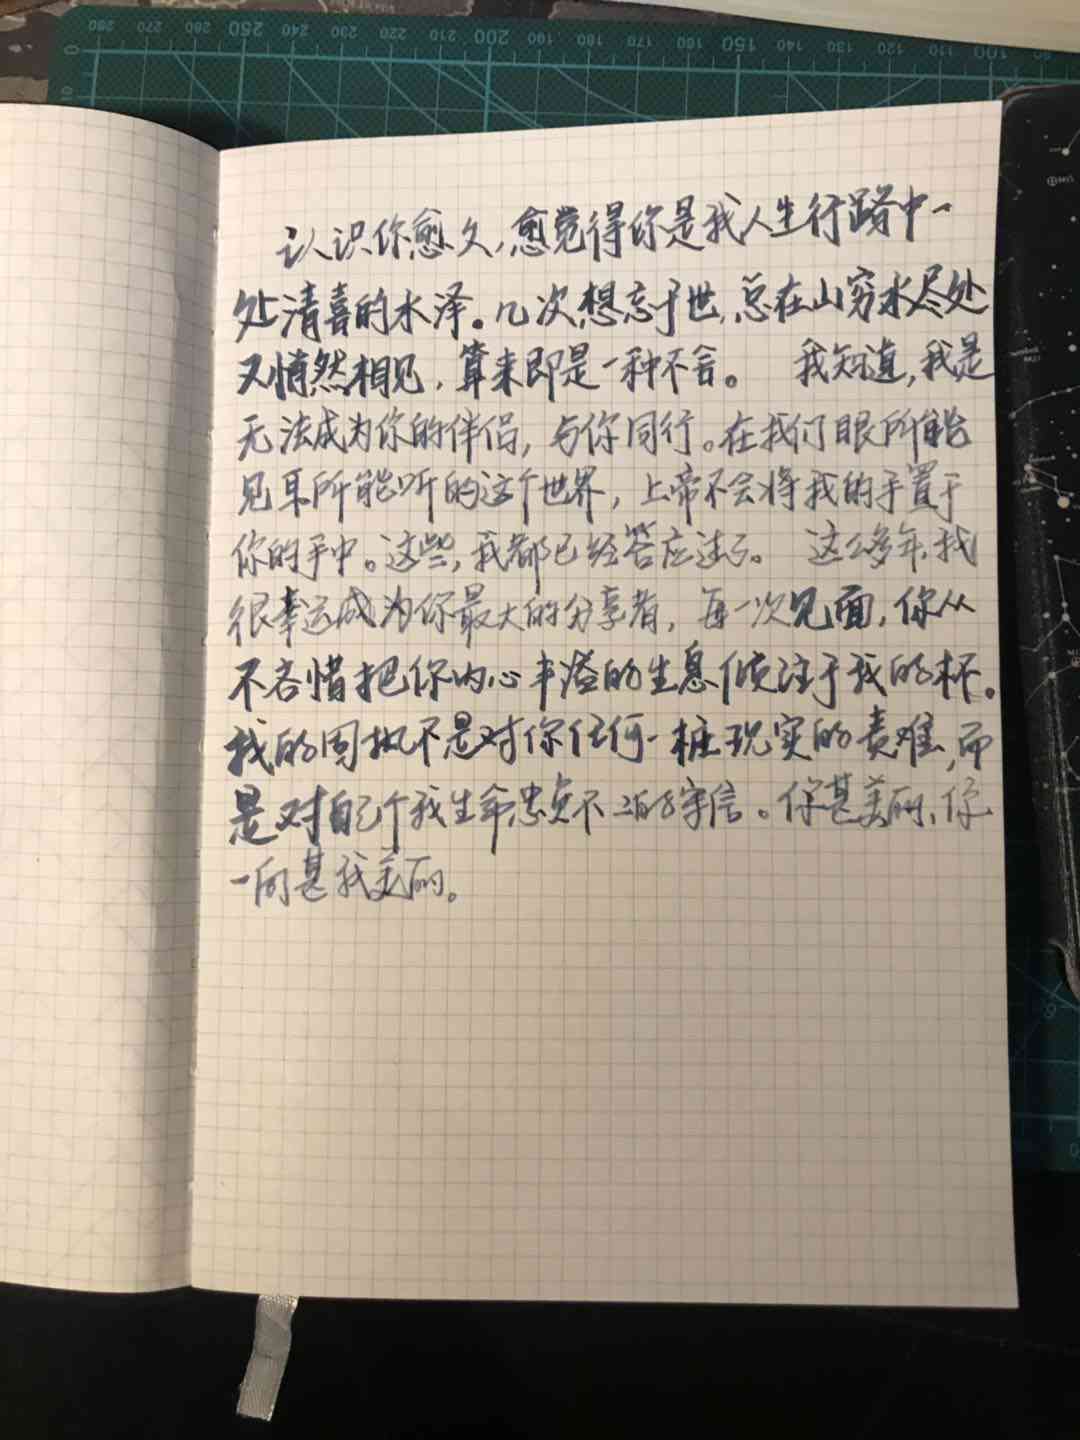 260 270 280 260 250 240 230 220 210 200 190 180 170 160 150 140 130 120 110 100
认识你愈久,愈觉得你是我人生行路中一
处清喜的水泽。几次想忘于世,总在山穷水尽处
又悄然相见,算来即是一种不舍。 我知道,我是
无法成为你的伴侣,与你同行。在我们眼所能
见耳所能听的这个世界,上帝不会将我的手置于
你的手中。这些,我都已经答应过了。 这么多年,我
很幸运成为你最大的分享者,每一次见面,你从
不吝惜把你内心丰溢的生息倾注于我的杯。
我的固执不是对你任何一桩现实的责难,而
是对自己个我生命忠贞不二的守信。你甚美丽,你
一向甚我美丽。